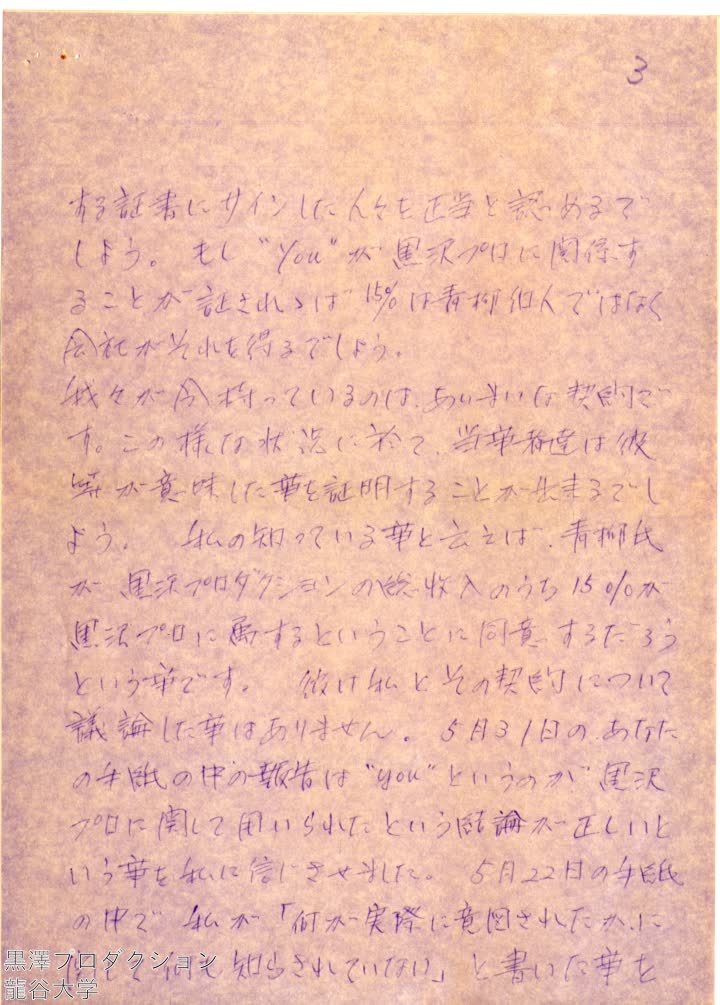 3
する証書にサインした人々を正当と認めるで
しょう。もし"You"が黒沢プロに関係す
ることが証されゝば15%は青柳個人ではなく
会社がそれを得るでしょう。
我々が今持っているのは、あいまいな契約で
す。この様な状況に於て、当事者達は彼
等が意味した事を証明することが出来るでし
ょう。 私の知っている事と云えば、青柳氏
が黒沢プロダクションの総収入のうち15%が
黒沢プロに属するということに同意するだろう
という事です。 彼は私とその契約について
議論した事はありません。5月31日のあなた
の手紙の中の報告は"you"というのが黒沢
プロに関して用いられたという結論が正しいと
いう事を私に信じさせました。 5月22日の手紙
の中で私が「何が実際に意図されたか、に
て何も知らされていない」と書いた事を
黒澤プロダクション
龍谷大学